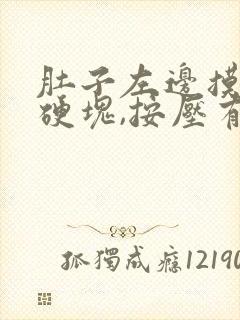 肚子左邊摸
硬塊,按壓有
孤獨成癮12190